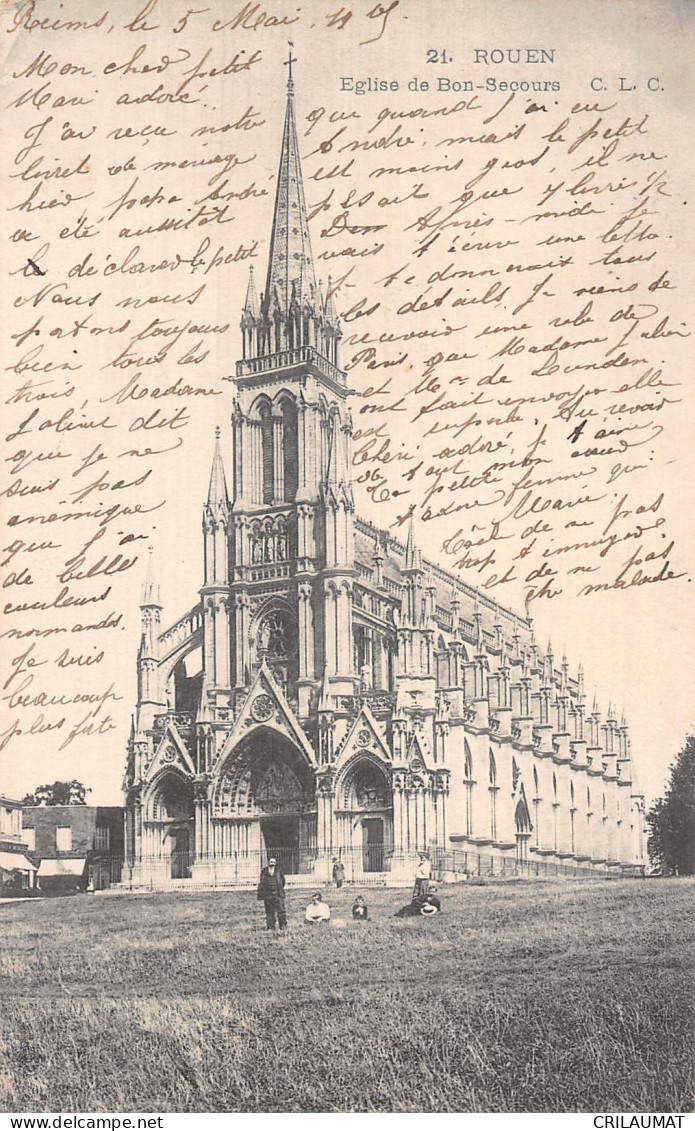 Reims, le 5 Mai
21. ROUEN
Eglise de Bon-Secours C. L. C.
Mon cher petit
Mari adoré.
J'ai reçu notre
livret de mariage
hier, papa André
a été aussitôt
le déclarer le petit
Nous nous
portons toujours
bien tous les
trois, Madame
dit
que je ne
suis pas
anémique
que j'ai
de belles
couleurs
normandes.
Je suis
beaucoup
plus forte
que quand j'ai eu
André, mais le petit
est moins gros, il ne
pesait que 7 livres 1/2
Après-midi je
vais t'écrire une lettre
te donnerait tous
les détails. Je viens de
recevoir une robe de
Paris, que Madame
et Mr de
ont fait envoyer elle
est superbe, Au revoir
chéri adoré, je t'aime
de tout mon coeur
Ta petite femme qui
t'adore
Marie
de ne pas
trop t'ennuyer
et de ne pas
être malade
CRILAUMAT